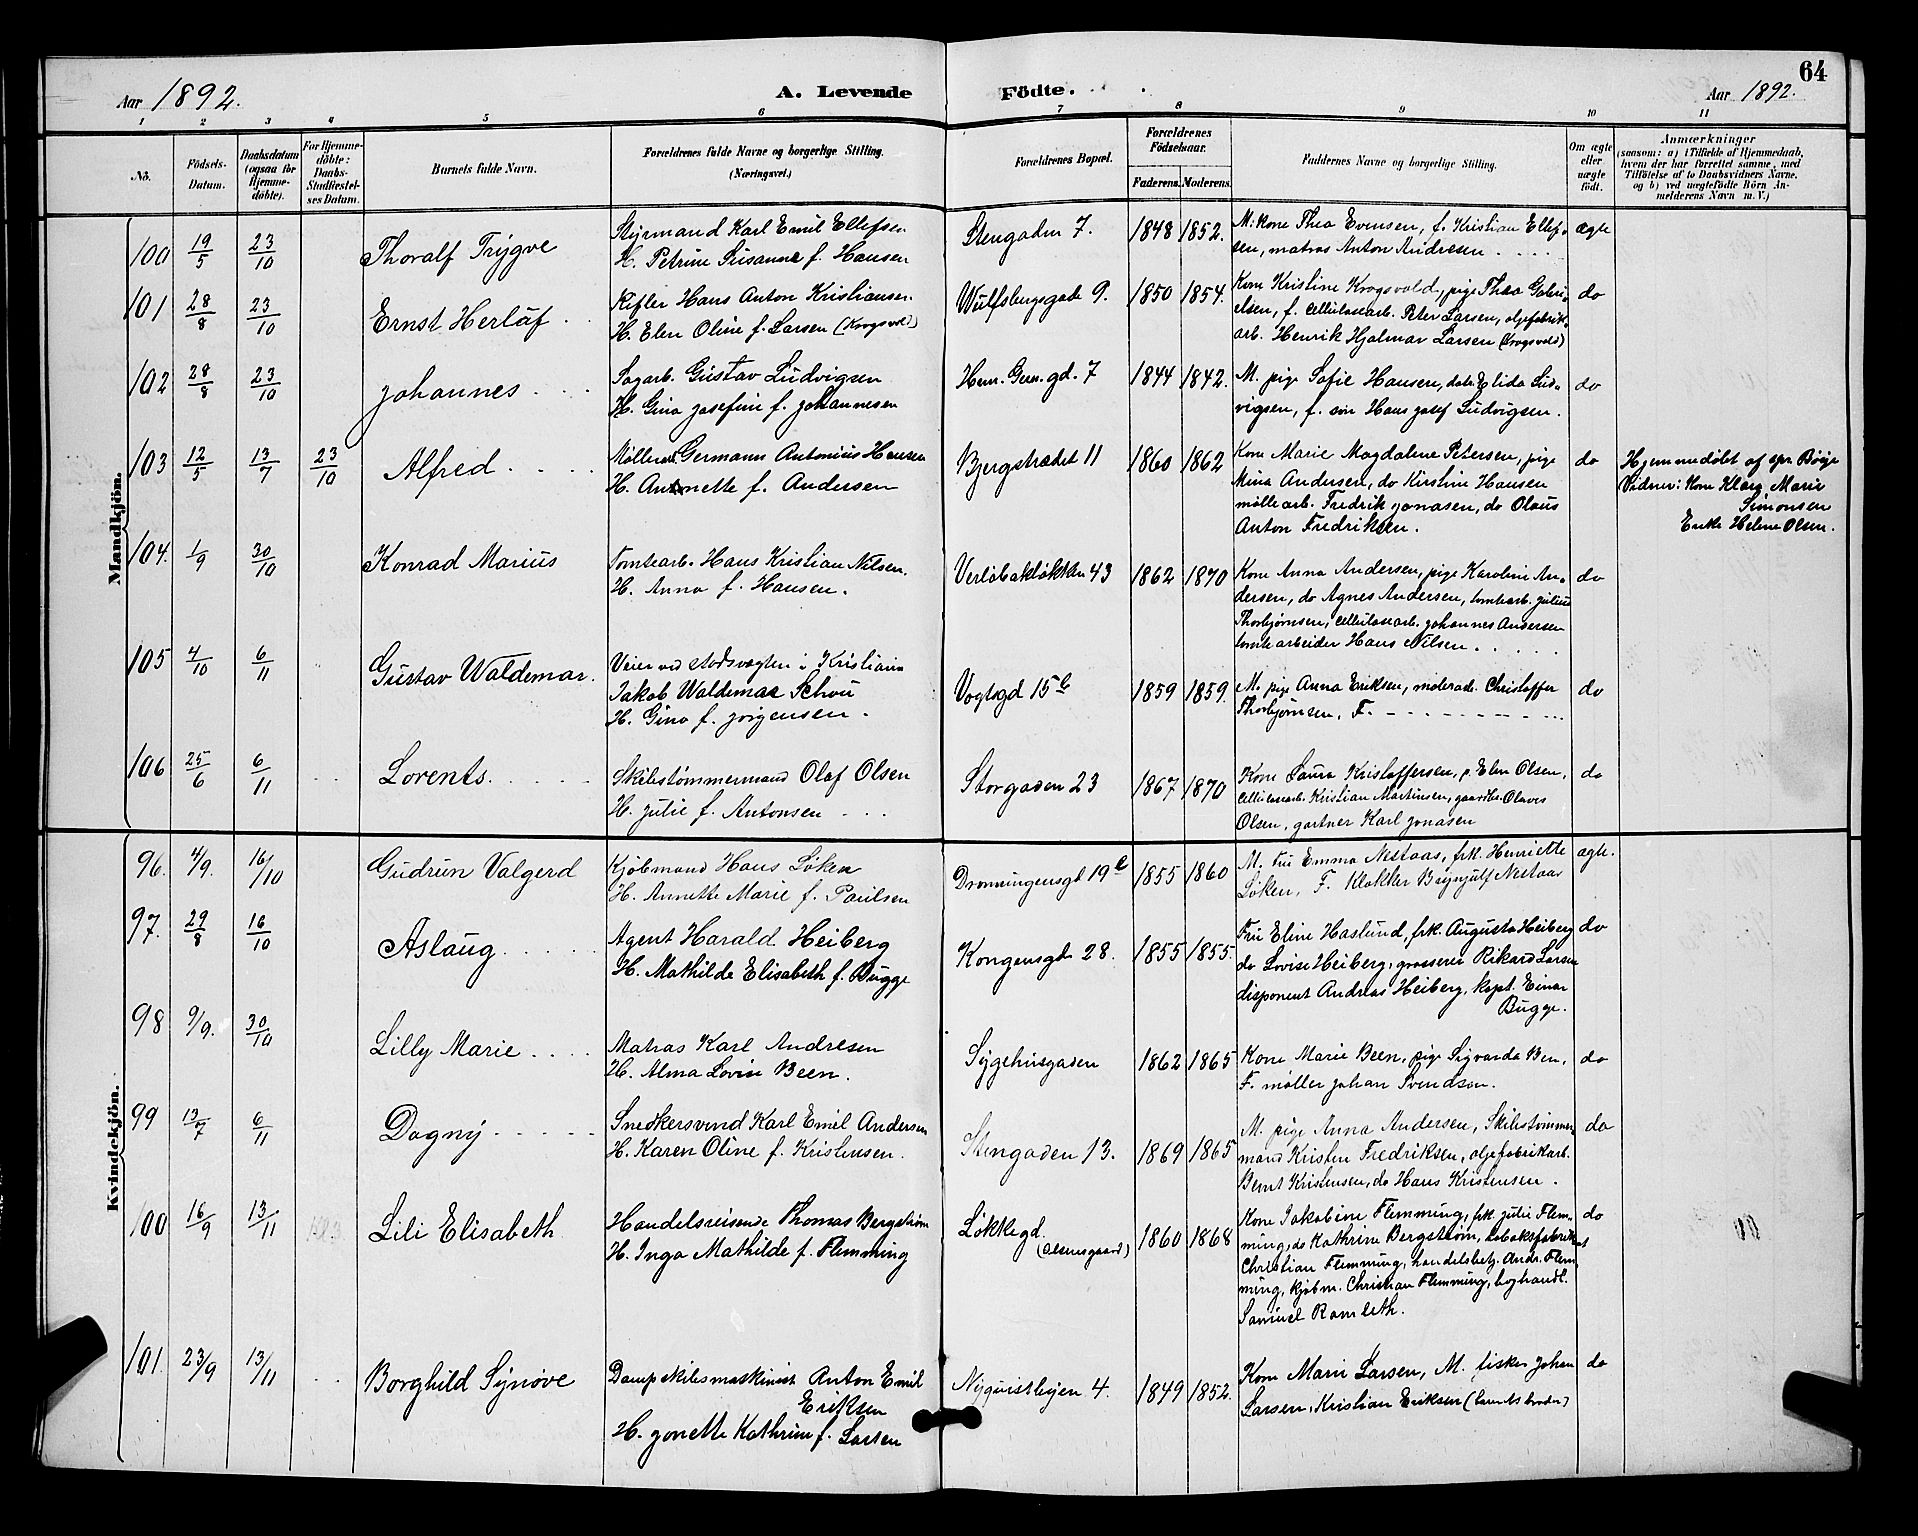 64
Aar 1892. A. Levende Födte. Aar 1892.
1 2 3 4 5 6 7 8 9 10 11
No. Födsels-Datum. Daabsdatum (ogsaa for Hjemme-döbte). For Hjemme-döbte: Daabs-Stadfæstel-ses Datum. Barnets fulde Navn. Forældrenes fulde Navne og borgerlige Stilling. (Næringsvei.) Forældrenes Bopæl. Forældrenes Födselsaar. Faderens. Moderens. Faddernes Navne og borgerlige Stilling. Om ægte eller uægte födt. Anmærkninger
(saasom: a) i Tilfælde af Hjemmedaab, hvem der har forrettet samme, med Tilföielse af to Daabsvidners Navne, og b) ved uægtefödte Börn An-melderens Navn m. V.)
Mandkjön.
100 19/5 23/10 Thoralf Trygve Styrmand Karl Emil Ellefsen Stengaden 7. 1848 1852. M. kone Thea Evensen, f. Kristian Ellef- ægte
H. Petrine Susanne f. Hansen sen, matros Anton Andresen
101 28/8 23/10 Ernst Herlaf Kifler Hans Anton Kristiansen Wulfsbergsgade 9. 1850 1854. Kone Kristine Krogsvold, pige Thea Gabri- do
H. Elen Oline f. Larsen (Krogsvold) elsen, f. cellulosearb. Peter Larsen, oljefabrik-
arb. Henrik Hjalmar Larsen (Krogsvold)
102 28/8 23/10 Johannes Sagarb. Gustav Ludvigsen Hem. Gem. gd. 7 1844 1842. M. pige Sofie Hansen, datr Elida Lud- do
H. Gina Josefine f. Johannesen vigsen, f. sön Hans Josef Ludvigsen.
103 12/5 13/7 23/10 Alfred Møllerarb. Germann Antonius Hansen Bjergstrædet 11 1860 1862 Kone Marie Magdalene Petersen, pige do Hjemmedøbt af spr. Böije
H. Antonette f. Andersen Mina Andersen, do Kirstine Hansen Vidner: Kone Klara Marie
møllearb. Fredrik Jonasen, do Olaus Simonsen
Anton Fredriksen. Enke Helene Olsen.
104. 1/9 30/10 Konrad Marius Tomtearb. Hans Kristian Nilsen. Verløbakløkken 43 1862 1870 Kone Anna Andersen, pige Karoline An- do
H. Anna f. Hansen. dersen, do Agnes Andersen, tomtearb. Julius
Thorbjørnsen, cellulosearb. Johannes Andersen
tomtearbeider Hans Nilsen.
105 4/10 6/11 Gustav Waldemar. Veier ved stadsvægten i Kristiania
Jakob Waldemar Schou Vogtsgd 15b 1859 1859. M. pige Anna Eriksen, malerarb. Christoffer do
H. Gina f. Jörgensen. Thorbjørnsen, F.
106 25/6 6/11 Lorents. Skibstømmermand Olaf Olsen Storgaden 23 1867 1870 Kone Laura Kristoffersen, p. Elen Olsen, do
H. Julie f. Antonsen cellulosearb. Kristian Martinsen, gaardbr. Olaves
Olsen, gartner Karl Jonasen
Kvindekjön.
96. 4/9. 16/10 Gudrun Valgerd Kjøbmand Hans Løken Dronningensgd 19b 1855 1860 M. fru Emma Nestaas, frk. Henriette ægte.
H. Annette Marie f. Paulsen Løken, F. Klokker Brynjulf Nestaas
97. 29/8 16/10 Aslaug Agent Harald Heiberg Kongensgd. 28. 1855 1855. Fru Eline Haslund, frk. Augusta Heiberg do
H. Mathilde Elisabeth f. Bugge do Lovise Heiberg, grosserer Rikard Larsen
disponent Andreas Heiberg, kapt. Einar
Bugge.
98 9/9. 30/10 Lilly Marie Matros Karl Andresen Sygehusgaden 1862 1865 Kone Marie Been, pige Sigvarda Been, do
H. Alma Lovise Been. F. møller Johan Svendsen.
99 13/7 6/11 Dagny Snedkersvend Karl Emil Andersen Stengaden 13. 1869 1865 M. pige Anna Andersen, Skibstømmer- do
H. Karen Oline f. Kristensen. mand Kristen Fredriksen, oljefabrikarb.
Bernt Kristensen, do Hans Kristensen.
100 16/9 13/11 Lili Elisabeth Handelsreisende Thomas Bergstrøm Løkkegd. 1860 1868 Kone Jakobine Flemming, frk. Julie Flem- do
H. Inga Mathilde f. Flemming (Olsensgaard) ming, do Kathrine Bergstrøm, tobaksfabrikant
Christian Flemming, handelsbetj. Andr. Flem-
ming, kjøbm. Christian Flemming, boghandl.
Samuel Ramleth.
101. 23/9 13/11 Borghild Synøve Dampskibsmaskinist Anton Emil Nyquistbyen 4. 1849 1852. Kone Marie Larsen, M. fisker Johan do
Eriksen Larsen, Kristian Eriksen (barnets broder)
H. Jonette Kathrine f. Larsen